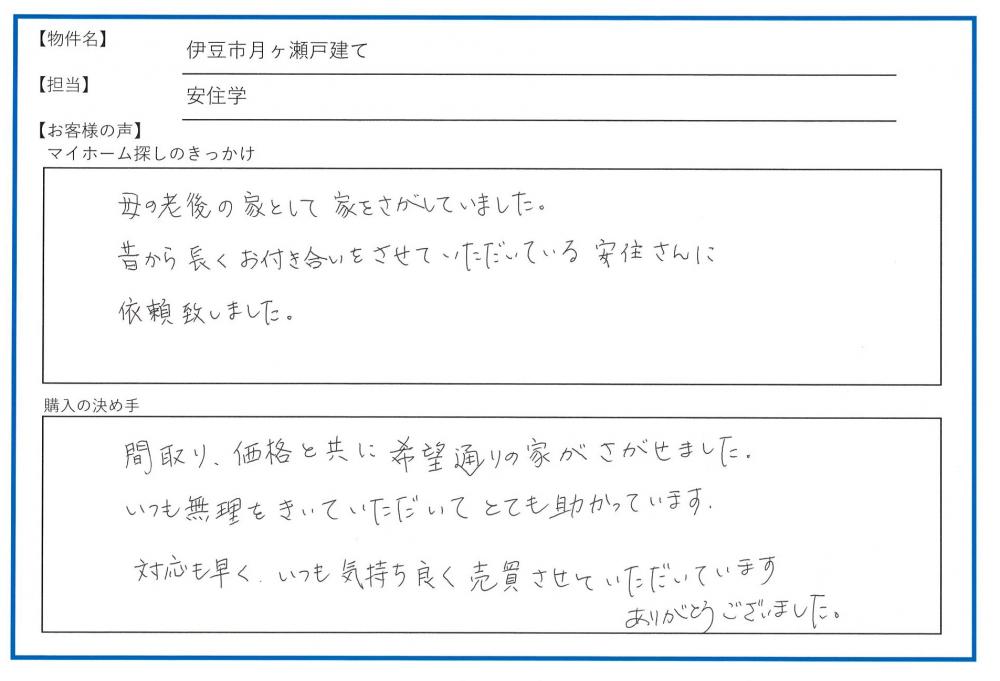 【物件名】
伊豆市月ヶ瀬戸建て
【担当】
安住学
【お客様の声】
マイホーム探しのきっかけ
母の老後の家として家をさがしていました。
昔から長くお付き合いをさせていただいている安住さんに
依頼致しました。
購入の決め手
間取り、価格と共に希望通りの家がさがせました。
いつも無理をきいていただいてとても助かっています.
対応も早く、いつも気持ち良く売買させていただいています
ありがとうございました。